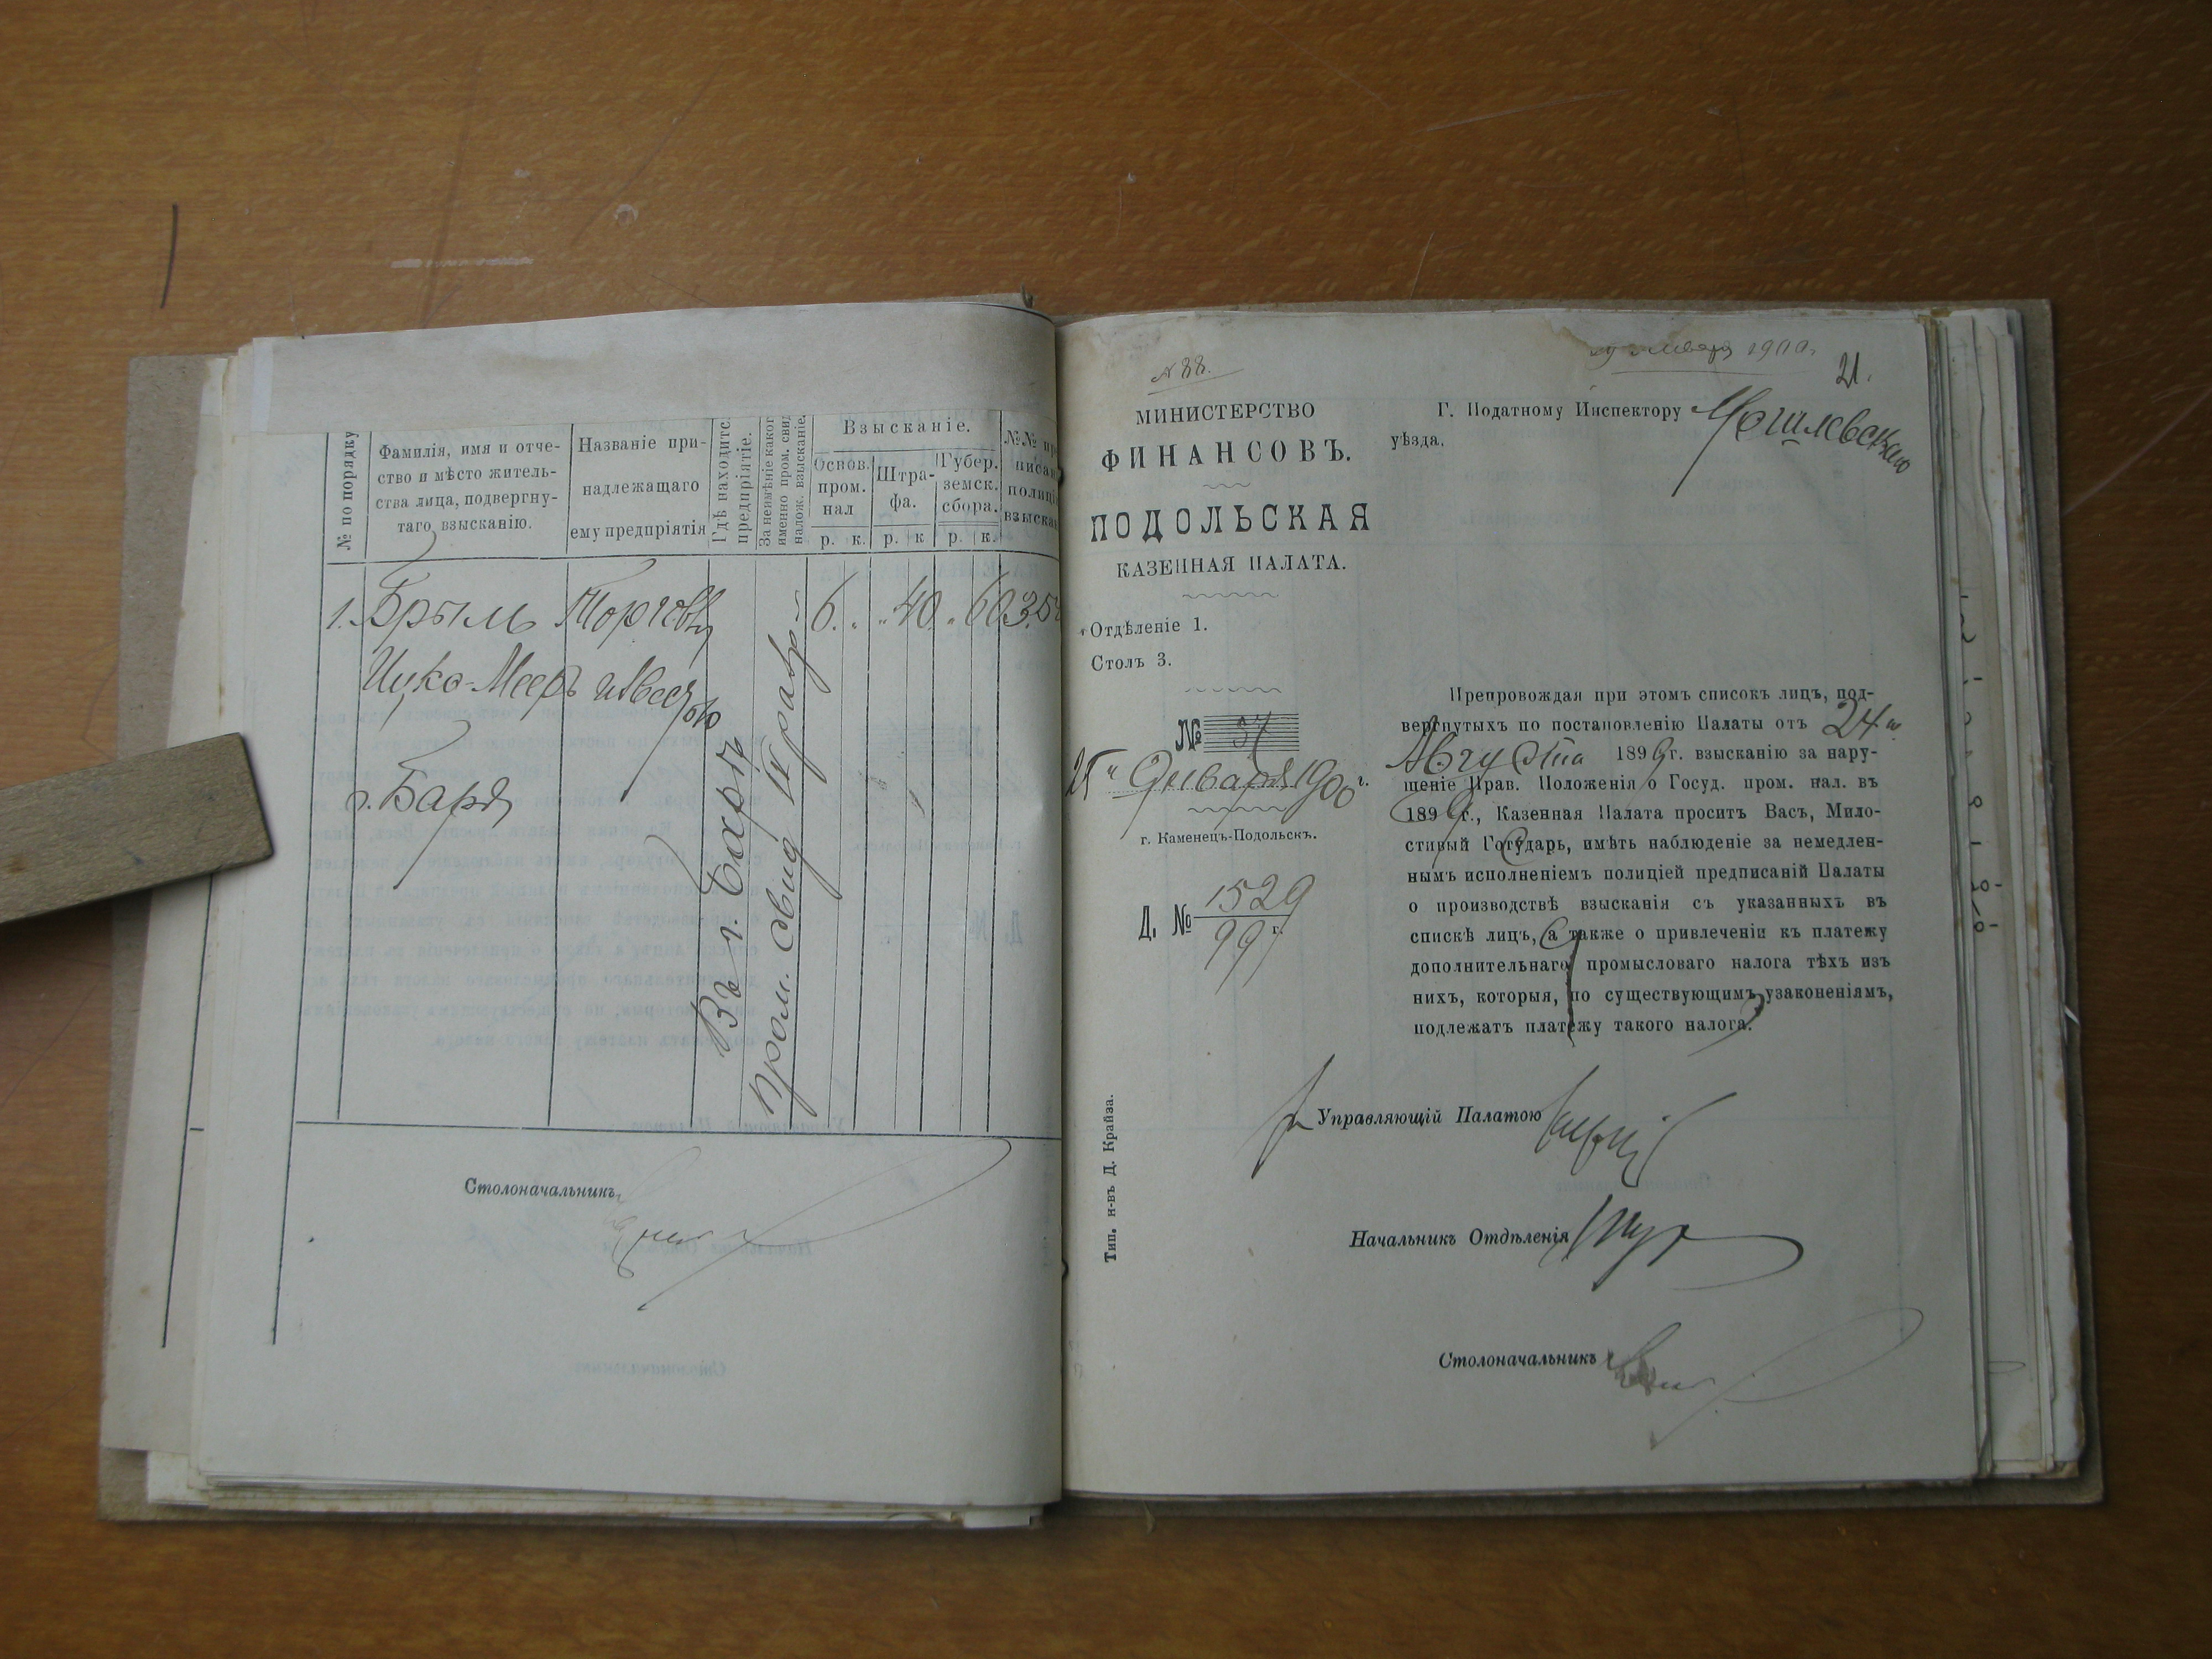 № по порядку
Фамилія, имя и отче-
ство и мѣсто житель-
ства лица, подвергну-
таго взысканію.
Названіе при-
надлежащаго
ему предпріятія
Гдѣ находитс.
предпріятіе.
За неимѣніе каког
именно пром. свид
налож. взысканіе.
Взысканіе.
Основ.
пром.
нал
Штра-
фа.
Губер.
земск.
сбора.
р. к. р. к р. к.
№№
полиці
взыска
1. Брыль Торговля
6. „ „ 40 „ 60
Ицко-Мееръ известью
г. Баръ
Въ г. Барѣ
Пром. свид
Столоначальникъ
№ 88.
января 1900 г.
21.
МИНИСТЕРСТВО
ФИНАНСОВЪ.
ПОДОЛЬСКАЯ
КАЗЕННАЯ ПАЛАТА.
Отдѣленіе 1.
Столъ 3.
№ 37
25 " Января 1900 г.
г. Каменецъ-Подольскъ.
Д. № 1529
99 г.
Тип. н-въ Д. Крайза.
Г. Податному Инспектору Могилевскаго
уѣзда.
Препровождая при этомъ списокъ лицъ, под-
вергнутыхъ по постановленію Палаты отъ 24 "
Августа 1899 г. взысканію за нару-
шеніе Прав. Положенія о Госуд. пром. нал. въ
1899 г., Казенная Палата проситъ Васъ, Мило-
стивый Государь, имѣть наблюденіе за немедлен-
нымъ исполненіемъ полиціей предписаній Палаты
о производствѣ взысканія съ указанныхъ въ
спискѣ лицъ, а также о привлеченіи къ платежу
дополнительнаго промысловаго налога тѣхъ изъ
нихъ, которыя, по существующимъ узаконеніямъ,
подлежатъ платежу такого налога.
Управляющій Палатою
Начальникъ Отдѣленія
Столоначальникъ